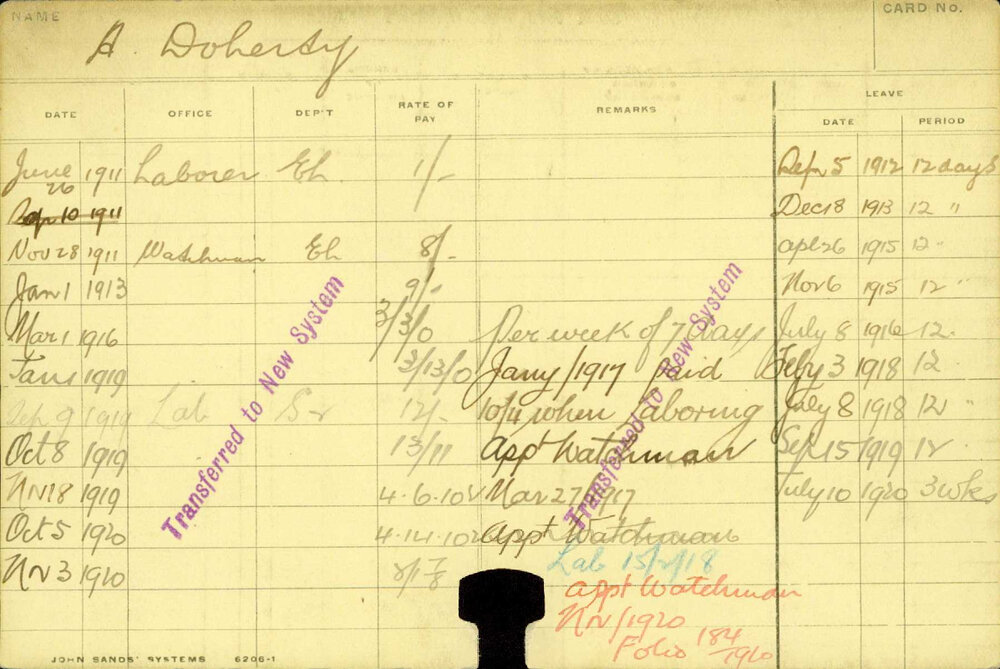 NAME
CARD No.
A. Doherty
LEAVE
DATE OFFICE DEP'T RATE OF PAY REMARKS DATE PERIOD
June 26 1911 Laborer Eh. 1/- Sep 5 1912 12 days
Sep 10 1911 Dec 18 1913 12 "
Nov 28 1911 Watchman Eh 8/- apl 26 1915 12 "
Jan 1 1913 9/- Nov 6 1915 12 "
Mar 1 1916 3/3/0 Per week of 7 days July 8 1916 12 "
Jan 1 1919 3/13/0 Jany/1917 Paid Feby 3 1918 12
Sep 9 1919 Lab 12/- 10/4 when Laboring July 8 1918 12 "
Oct 8 1919 13/11 appt Watchman Sep 15 1919 12
Nv 18 1919 4.6.10 Mar 27 1917 July 10 1920 3 wks
Oct 5 1920 4.14.10 appt Watchman
Nv 3 1920
Lab 18
appt Watchman
Nv/1920
Folio 184/1920
Transferred to New System
Transferred to New System
JOHN SANDS' SYSTEMS 6206-1